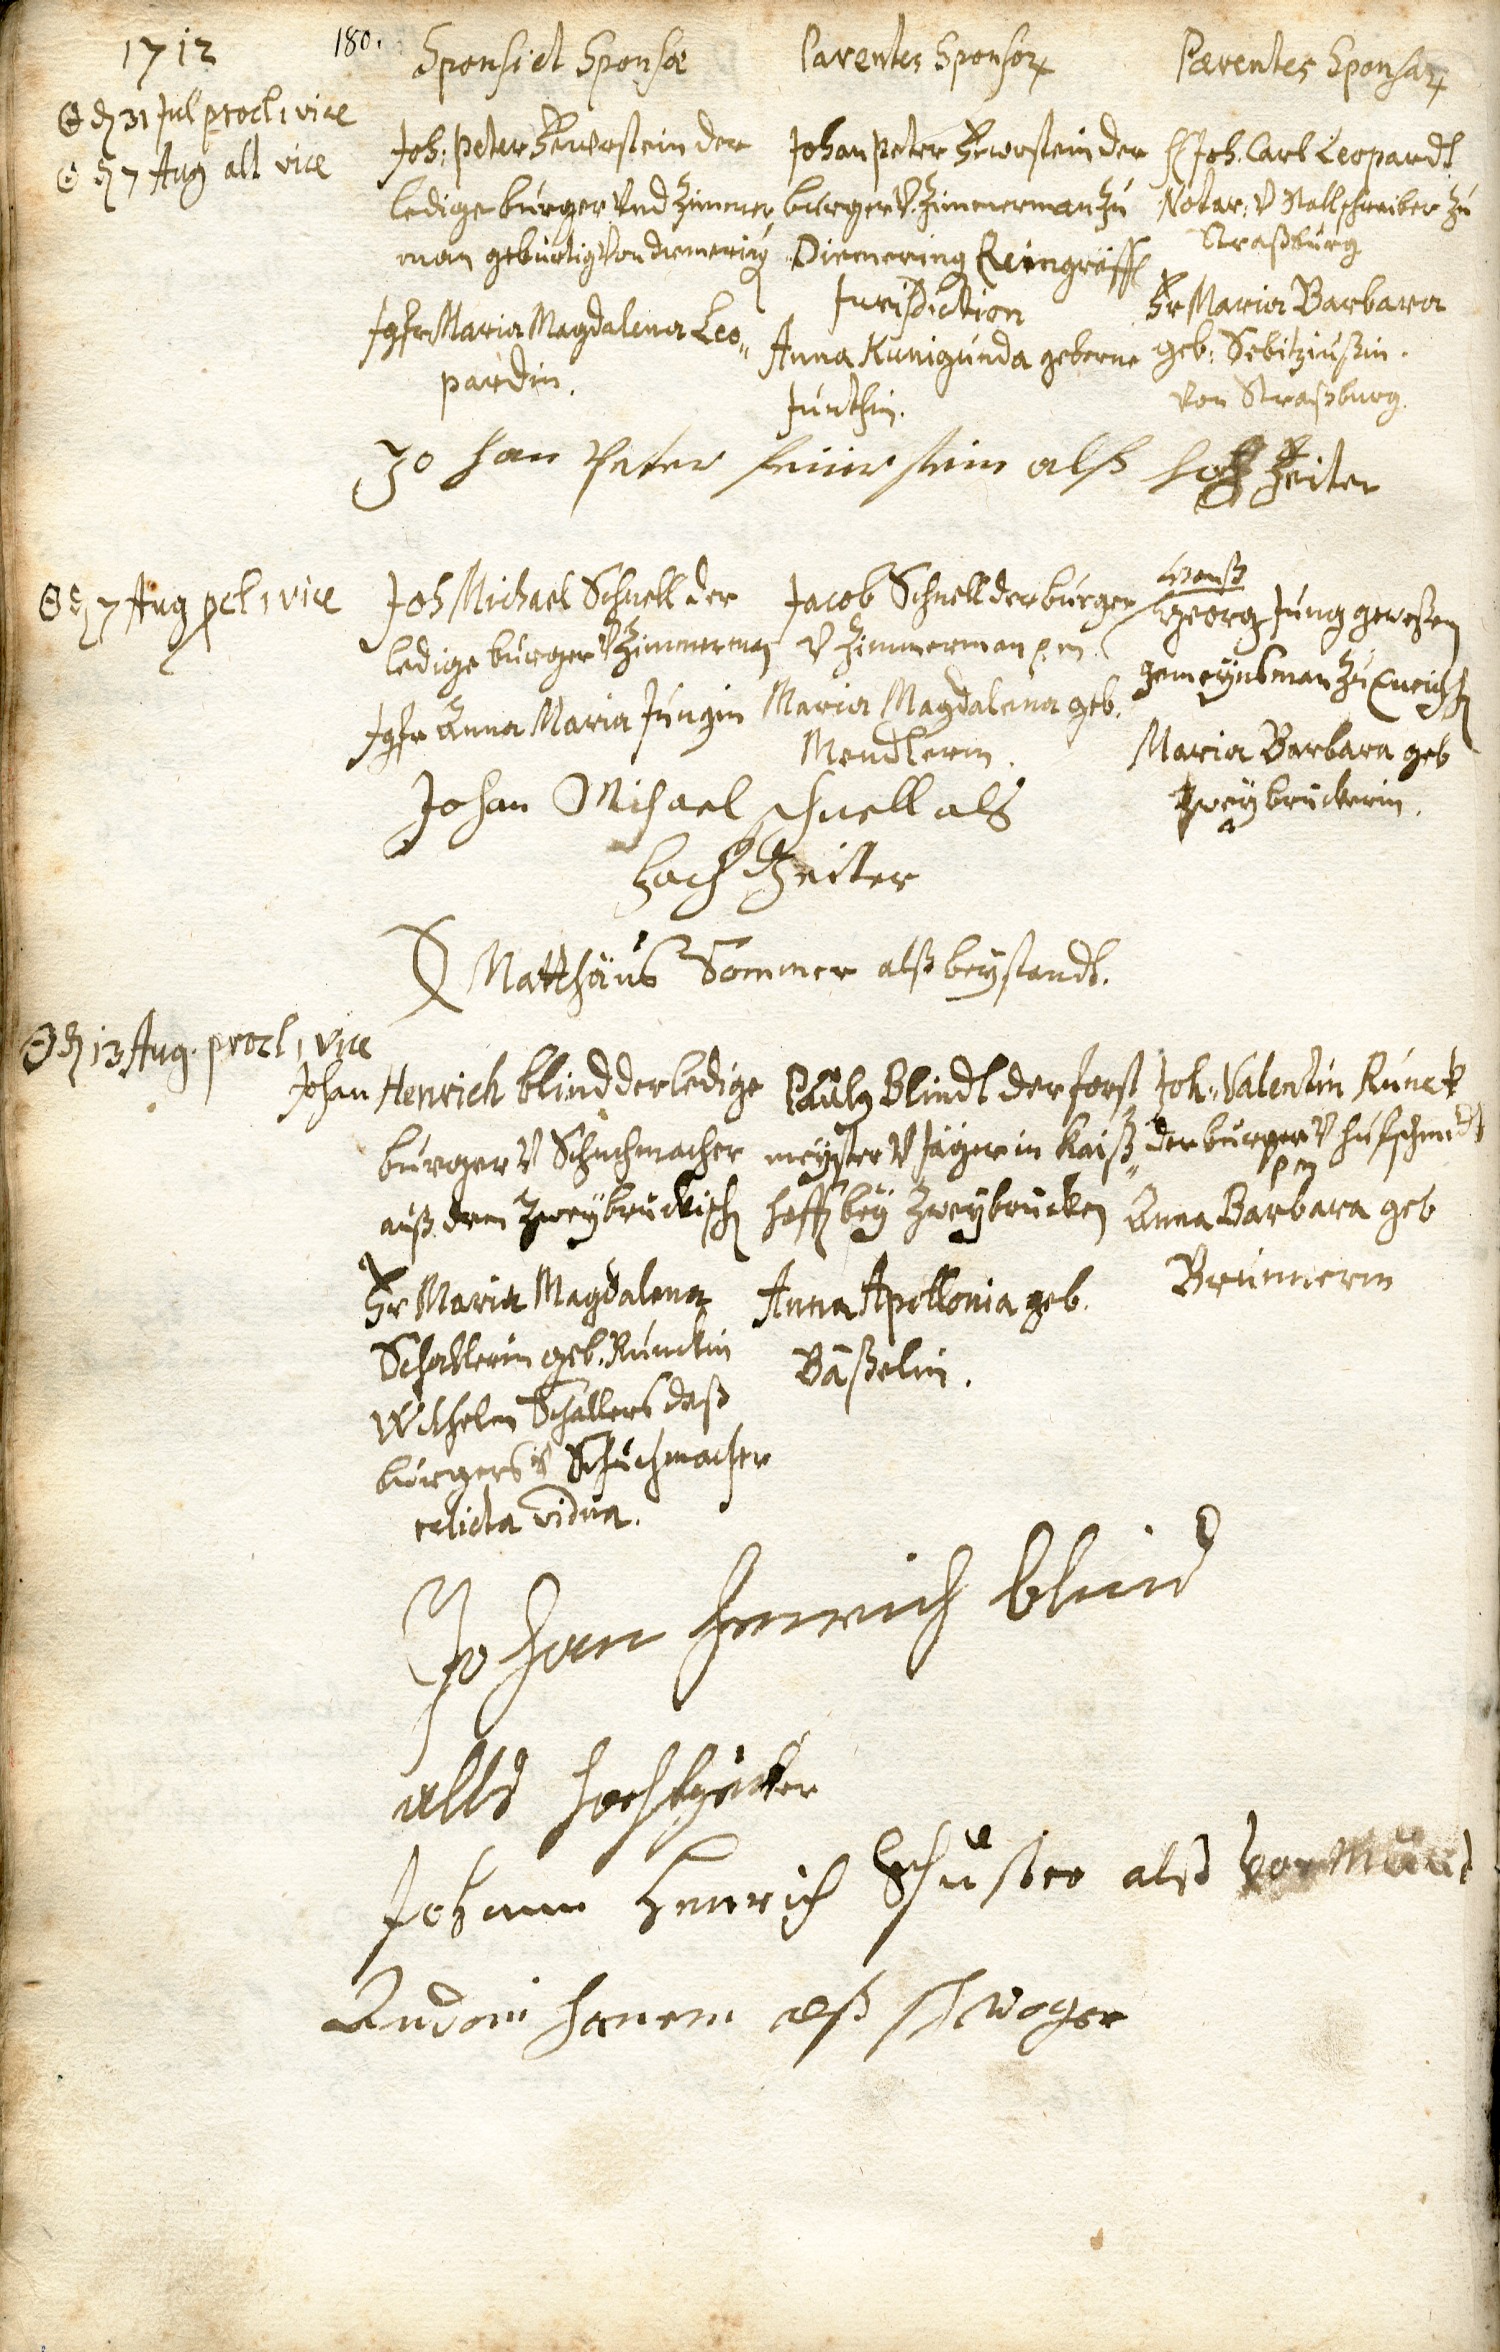 1712
180.
Sponsi et Sponsæ
Parentes Sponsor
Parentes Sponsar
31 Jul procl 1 vice
7 Aug alt vice
Joh: peter Fewrstein der
ledige burger Vnd Zimmer
man gebürtig Von diemering
Jgfr Maria Magdalena Leo„
pardin.
Johan peter Fewrstein der
burger V. Zimmerman zu
Diemering Reingräff
Jurisdiction
Anna Kunigunda geborne
Junthin.
H Joh. Carl Leopardt
Notar: V Stallschreiber zu
Straßburg
Fr Maria Barbara
geb: Sebitziußin.
von Straßburg.
Jo han Peter feuirstein alß hochzeiter
7 Aug pcl 1 vice
Joh Michael Schnell der
ledige burger V Zimmerman
Jgfr Anna Maria Jungin
Jacob Schnell der burger
V Zimmerman p.m.
Maria Magdalena geb.
Mendlerin.
Hanß
Georg Jung geweßen
gemeynsman zu
Maria Barbara geb
Zweybruckerin.
Johan Michael schnell als
hoch Zeiter
Matthäus Sommer alß beystandt.
13 Aug. procl 1 vice
Johan Henrich blind der ledige
burger V Schuchmacher
auß dem Zweybruckisch
Fr Maria Magdalena
Schallerin geb. Runckin
Wilhelm Schallers deß
burgers V Schuchmacher
relicta vidua.
Paulg Blindt der forst
meyster V Jäger in Kaiß„
hoff bey Zweybrucken
Anna Apollonia geb.
Bäßelin.
Joh: Valentin Runck
der burger V hufschmidt
pm
Anna Barbara geb
Brunnerin
Johan henrich blind
allß hochtzeiter
Johann Henrich Schuster alß Vormund
Andoni hanem alß schwoger